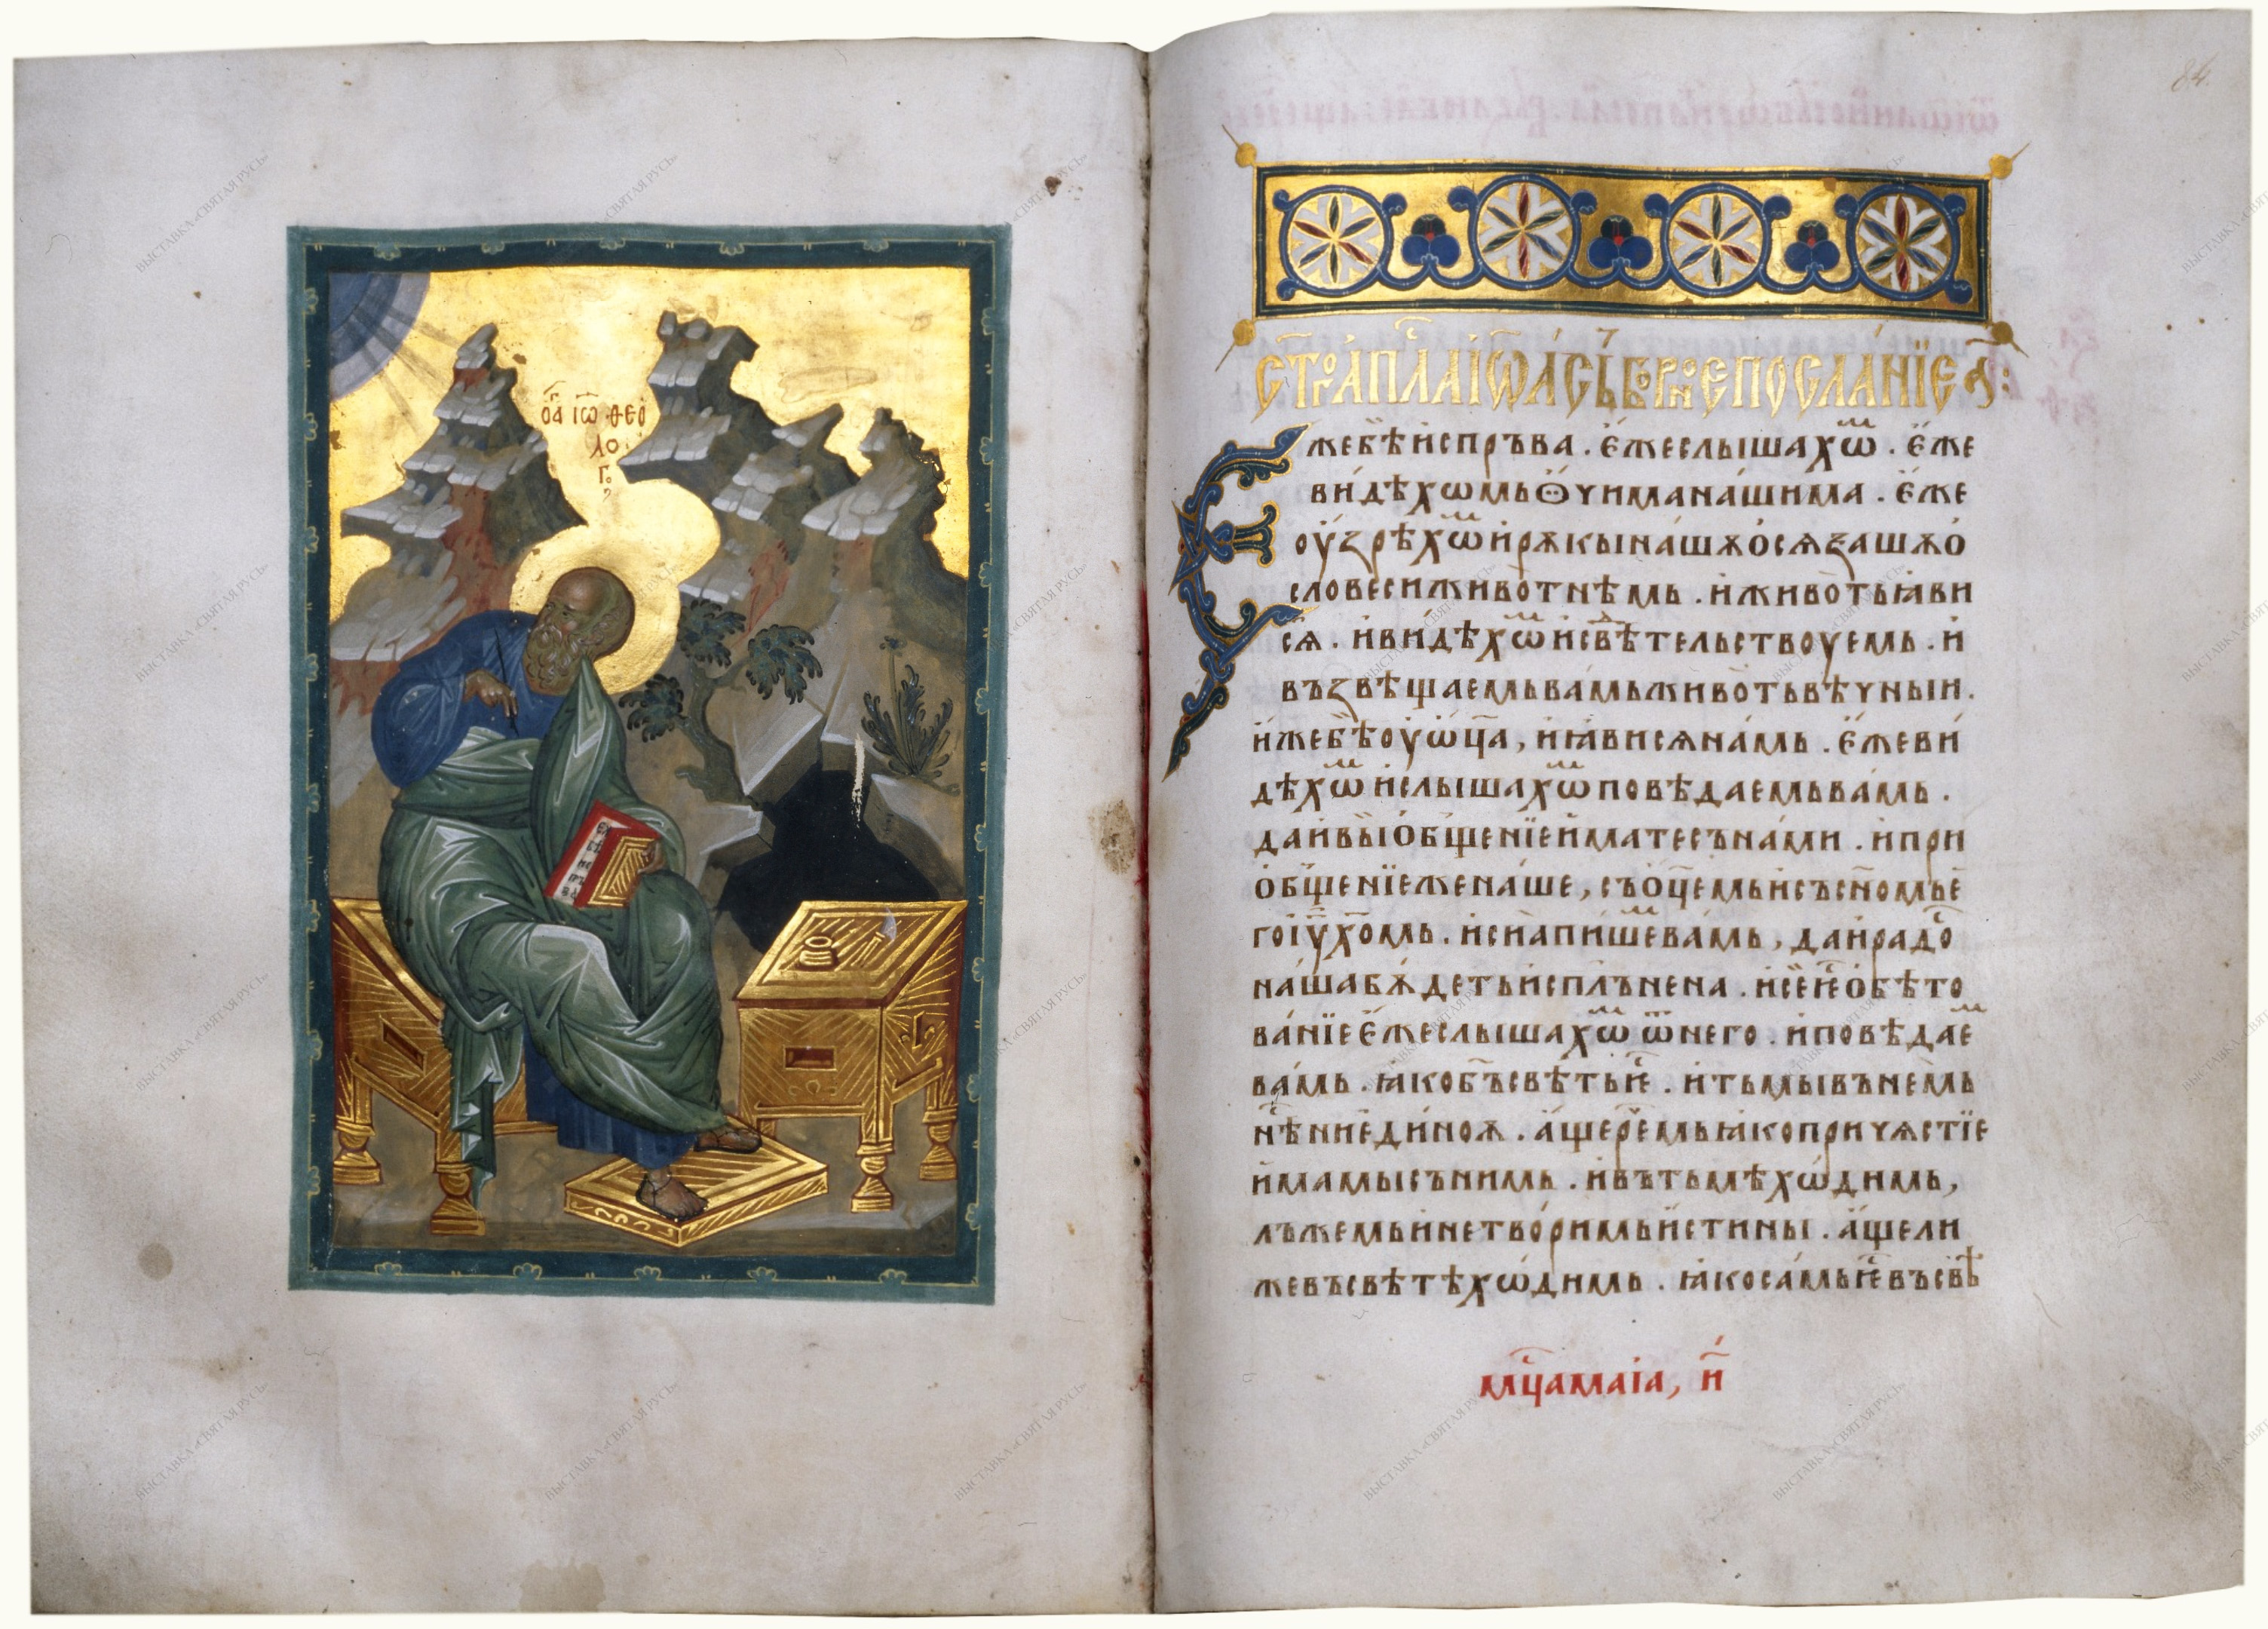 о҃а іѡ ѳео
ло
го
84.
ст҃го ап҃ла іѡа съборное посланїе а҃:
же бѣ испръва . еже слышахѡм . еже
видѣхомь Ѳчима нашима . еже
оузрѣхѡм и рѫкы нашѫ осѧзашѫ о
словеси животнѣмь . и животь ꙗви
сѧ . и видѣхѡм и свѣтельствоуемь . и
възвѣщаемь вамь животь вѣчныи .
иже бѣ оу ѿц҃а , и ꙗви сѧ намь . еже ви
дѣхѡм и слышахѡм повѣдаемь вамь .
да и вы общенїе имате съ нами . и при
общенїе же наше , съ оц҃емь и съ сн҃омь е
го і҃у х҃омь . и сиа пишем вамь , да и радос
наша бѫдеть исплънена . и се ес обѣто
ванїе еже слышахѡм ѿ него . и повѣдаем
вамь . ꙗко б҃ъ свѣть ес . и тьмы въ немь
нѣс ни единоѧ . аще речемь ꙗко причѧстїе
имамы съ нимь . и въ тьмѣ хѡдимь ,
лъжемь и не творимь истины . аще ли
же въ свѣтѣ хѡдимь . ꙗко самь ес въ свѣ
мц҃а маіа , и҃